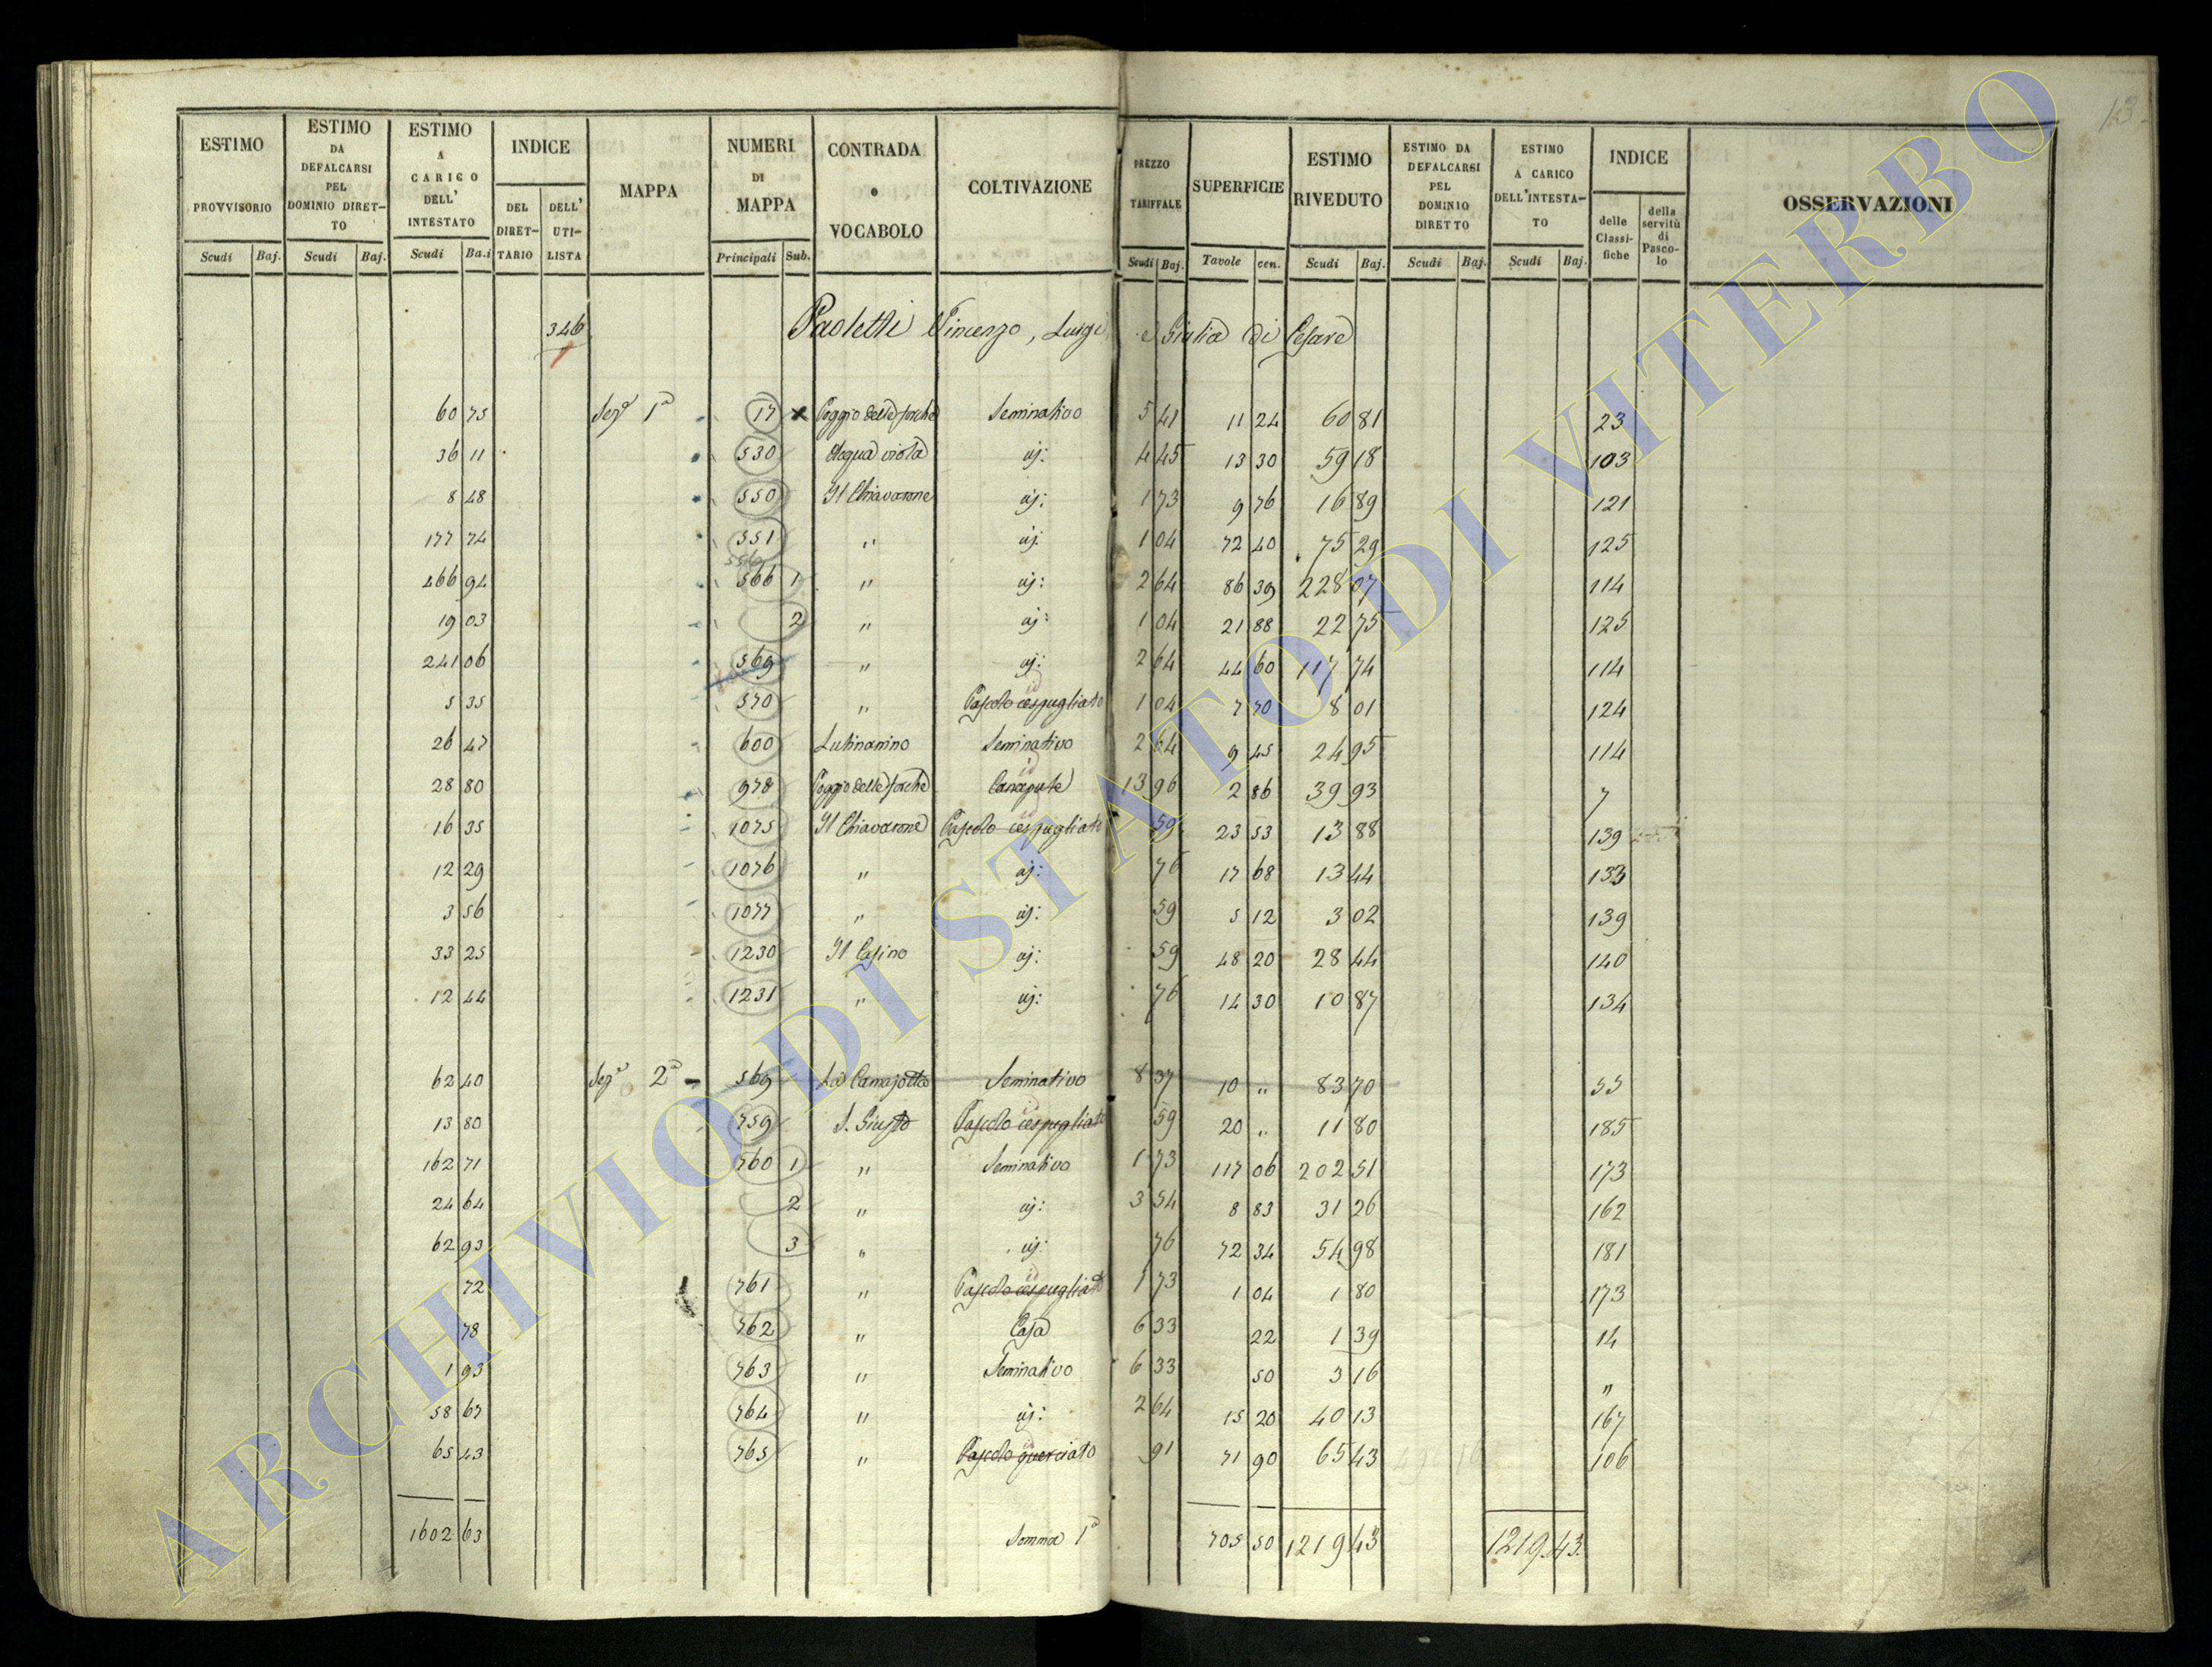 13
ESTIMO PROVVISORIO
ESTIMO DA DEFALCARSI PEL DOMINIO DIRET-TO
ESTIMO A CARICO DELL' INTESTATO
INDICE
DEL DIRET-TARIO
DELL' UTI-LISTA
MAPPA
NUMERI DI MAPPA
CONTRADA o VOCABOLO
COLTIVAZIONE
PREZZO TARIFFALE
SUPERFICIE
ESTIMO RIVEDUTO
ESTIMO DA DEFALCARSI PEL DOMINIO DIRETTO
ESTIMO A CARICO DELL'INTESTA-TO
INDICE
delle Classi-fiche
della servitù di Pasco-lo
OSSERVAZIONI
Scudi Baj. Scudi Baj. Scudi Ba.i Principali Sub. Scudi Baj. Tavole cen. Scudi Baj. Scudi Baj. Scudi Baj.
346 Paoletti Vincenzo, Luigi e Giulia di Cesare
60 75 Sezª 1ª 17 x Poggio delle forche Seminativo 5 41 11 24 60 81 23
36 11 530 Acqua viola id: 4 45 13 30 59 18 103
8 48 550 Il Chiavarone id: 1 73 9 76 16 89 121
177 74 551 " id: 1 04 72 40 75 29 125
556
466 94 566 1 " id: 2 64 86 39 228 07 114
19 03 2 " id: 1 04 21 88 22 75 125
241 06 569 " id: 2 64 44 60 117 74 114
id
5 35 570 " Pascolo cespugliato 1 04 7 70 8 01 124
26 47 600 Seminativo 2 64 9 45 24 95 114
id
28 80 978 Poggio delle forche Canapule 13 96 2 86 39 93 7
16 35 1075 Il Chiavarone Pascolo cespugliato 59 23 53 13 88 139
12 29 1076 " id: 76 17 68 13 44 133
3 56 1077 " id: 59 5 12 3 02 139
33 25 1230 Il Casino id: 59 48 20 28 44 140
12 44 1231 " id: 76 14 30 10 87 134
62 40 Sezª 2ª 569 La Seminativo 8 37 10 " 83 70 55
id
13 80 759 S. Giusto Pascolo cespugliato 59 20 " 11 80 185
162 71 760 1 " Seminativo 1 73 117 06 202 51 173
24 64 2 " id: 3 54 8 83 31 26 162
62 93 3 " id: 76 72 34 54 98 181
id
72 761 " Pascolo cespugliato 1 73 1 04 1 80 173
78 762 " Casa 6 33 22 1 39 14
1 93 763 " Seminativo 6 33 50 3 16 "
58 67 764 " id: 2 64 15 20 40 13 167
id
65 43 765 " Pascolo querciato 91 71 90 65 43 106
1602 63 Somma 1ª 705 50 1219 43 1219.43.
ARCHIVIO DI STATO DI VITERBO